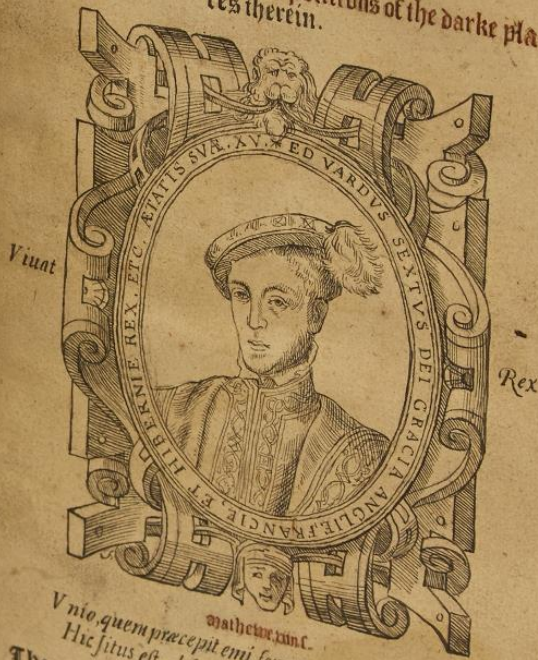 of the darke pla
ces therein.
ÆTATIS SVÆ. XV. * EDVARDVS SEXTVS DEI GRACIA ANGLIE, FRANCIE, ET HIBERNIE REX, ETC.
Viuat
Rex
Mathewe, xiiii.
Vnio, quem præcepit emi
Hic situs est